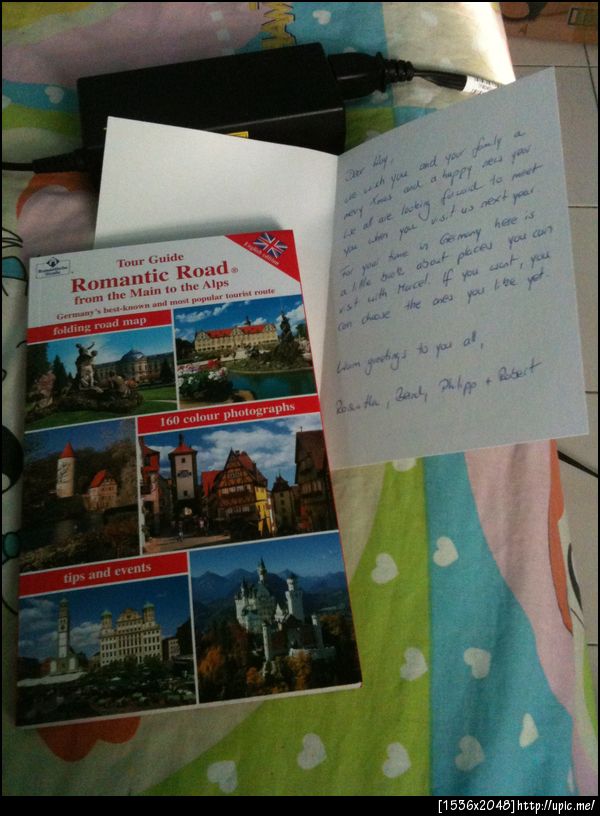 Romantische Straße
English edition
Tour Guide
Romantic Road®
from the Main to the Alps
Germany's best-known and most popular tourist route
folding road map
160 colour photographs
tips and events
Dear
we wish you and your family a
merry Xmas and a happy new year.
We all are looking forward to meet
you when you visit us next year.
For your time in Germany here is
a little book about places you can
visit with Marcel. If you want, you
can choose the ones you like yet.
Warm greetings to you all,
Philipp + Robert
[1536x2048]http://upic.me/